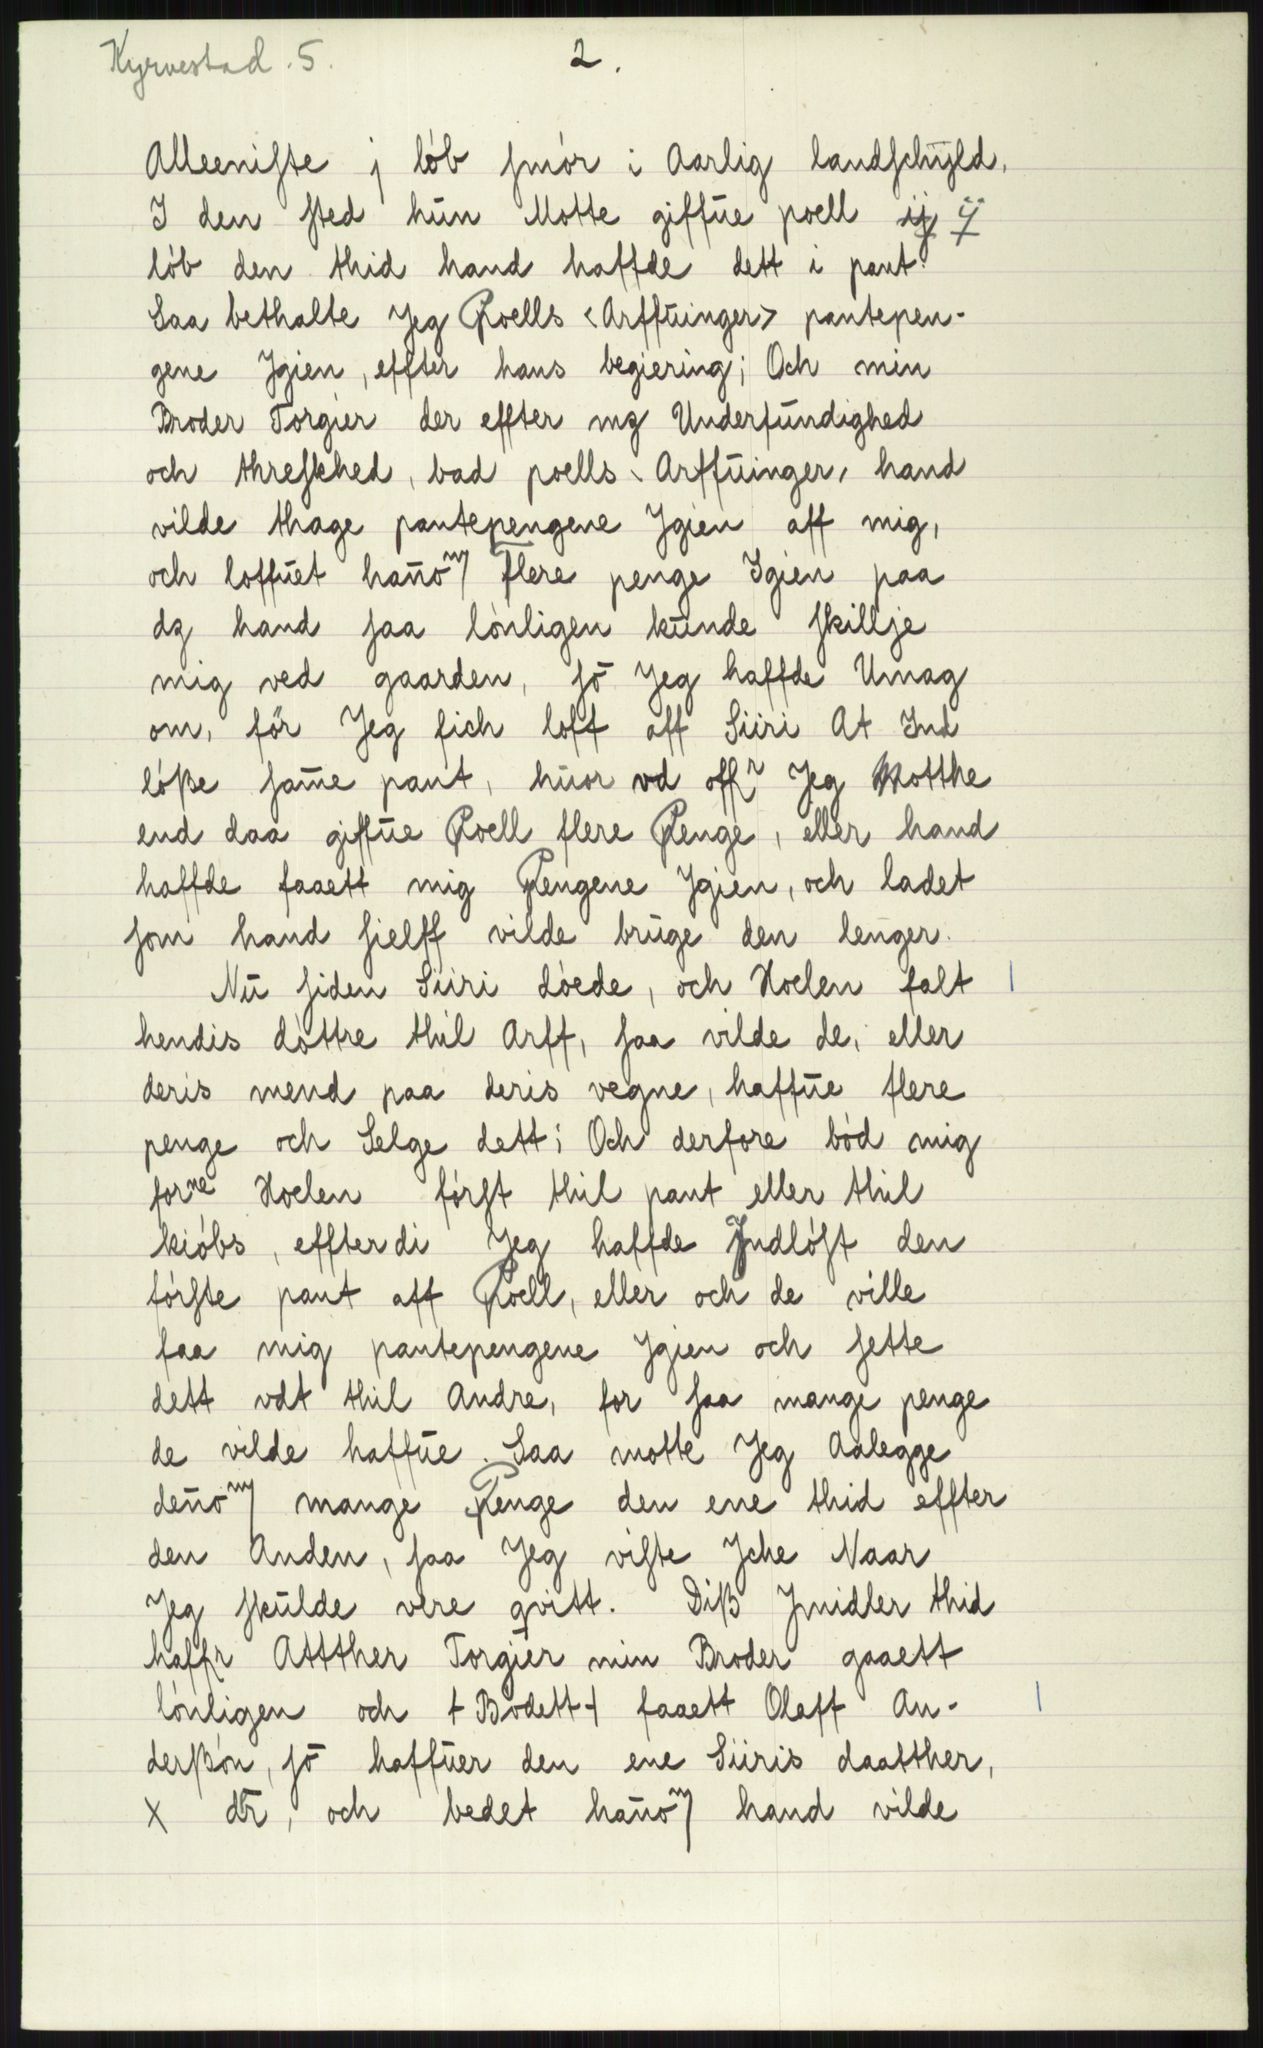 Kyrvestad. 5.
2.
Alleeniste j løb smór i Aarlig landschÿld.
I den sted hūn Motte giffūe poell ij ij
løb den thid hand haffde dett i pant.
Saa bethalte Jeg Poells <Arffūinger> pantepen-
gene Jgien, effter hans begiering; Och min
Broder Torgier der effter mz Underfundighed
och threskhed, bad poells Arffūinger, hand
vilde thage pantepengene Jgien aff mig,
och loffūet hañom flere penge Igien paa
dz hand saa lónligen kūnde skillje
mig ved gaarden, sō Jeg haffde Umag
om, før Jeg fich loff aff Siiri At Ind
lóße same pant, hūor vd offr Jeg Motthe
end daa giffūe Poell flere Penge, eller hand
haffde faaett mig Pengene Jgien, och ladet
som hand sielff vilde brūge den lenger.
Nū siden Siiri dóede, och Hoelen falt
hendis dóttre thil Arff, saa vilde de, eller
deris mend paa deris vegne, haffūe flere
penge och Selge dett; Och derfore bód mig
forne Hoelen fórst thil pant eller thil
kióbs, effterdi Jeg haffde Jndlóst den
fórste pant aff Poell, eller och de ville
faa mig pantepengene Jgien och sette
dett vdt thil Andre, for saa mange penge
de vilde haffūe. Saa motte Jeg Aalegge
deñom mange Penge den ene thid effter
den Anden, saa Jeg viste Jche Naar
Jeg skūlde vere qvitt. Diß Jmidler thid
haffr Attther Torgier min Broder gaaett
lónligen och + Bodett + faaett Oleff An-
derßón, sō haffūer den ene Siiris daatther,
X dr̄, och bedet hañom hand vilde